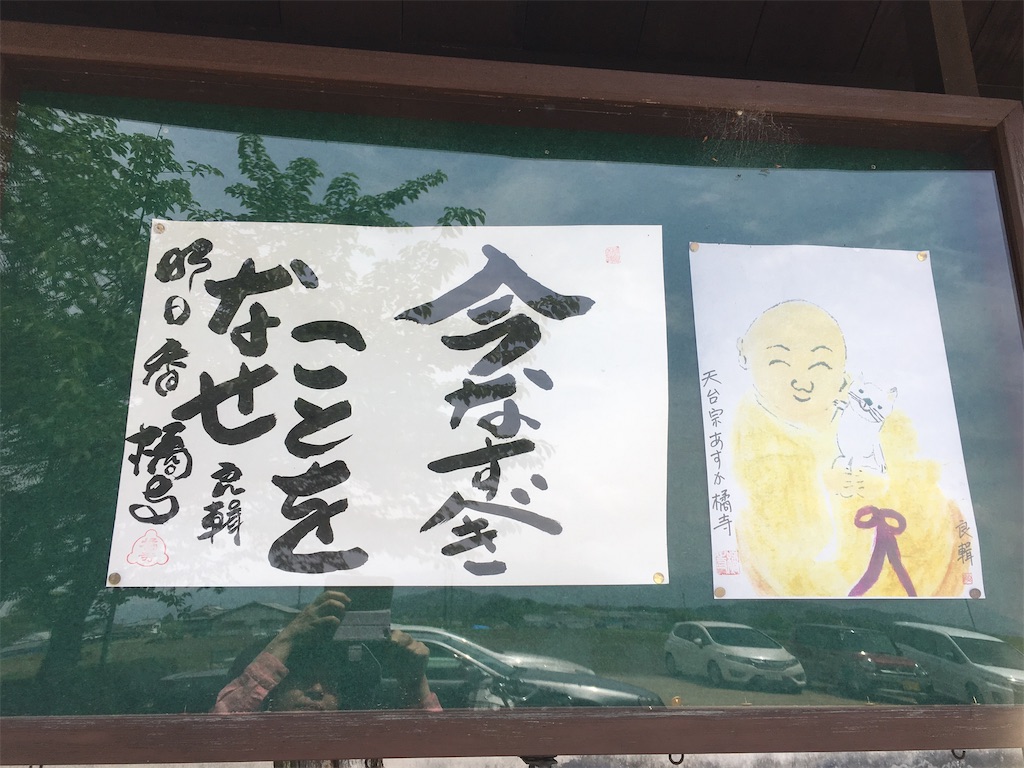 今なすべき
ことを
なせ
良輯
明日香
橘寺
天台宗あすか橘寺
良輯